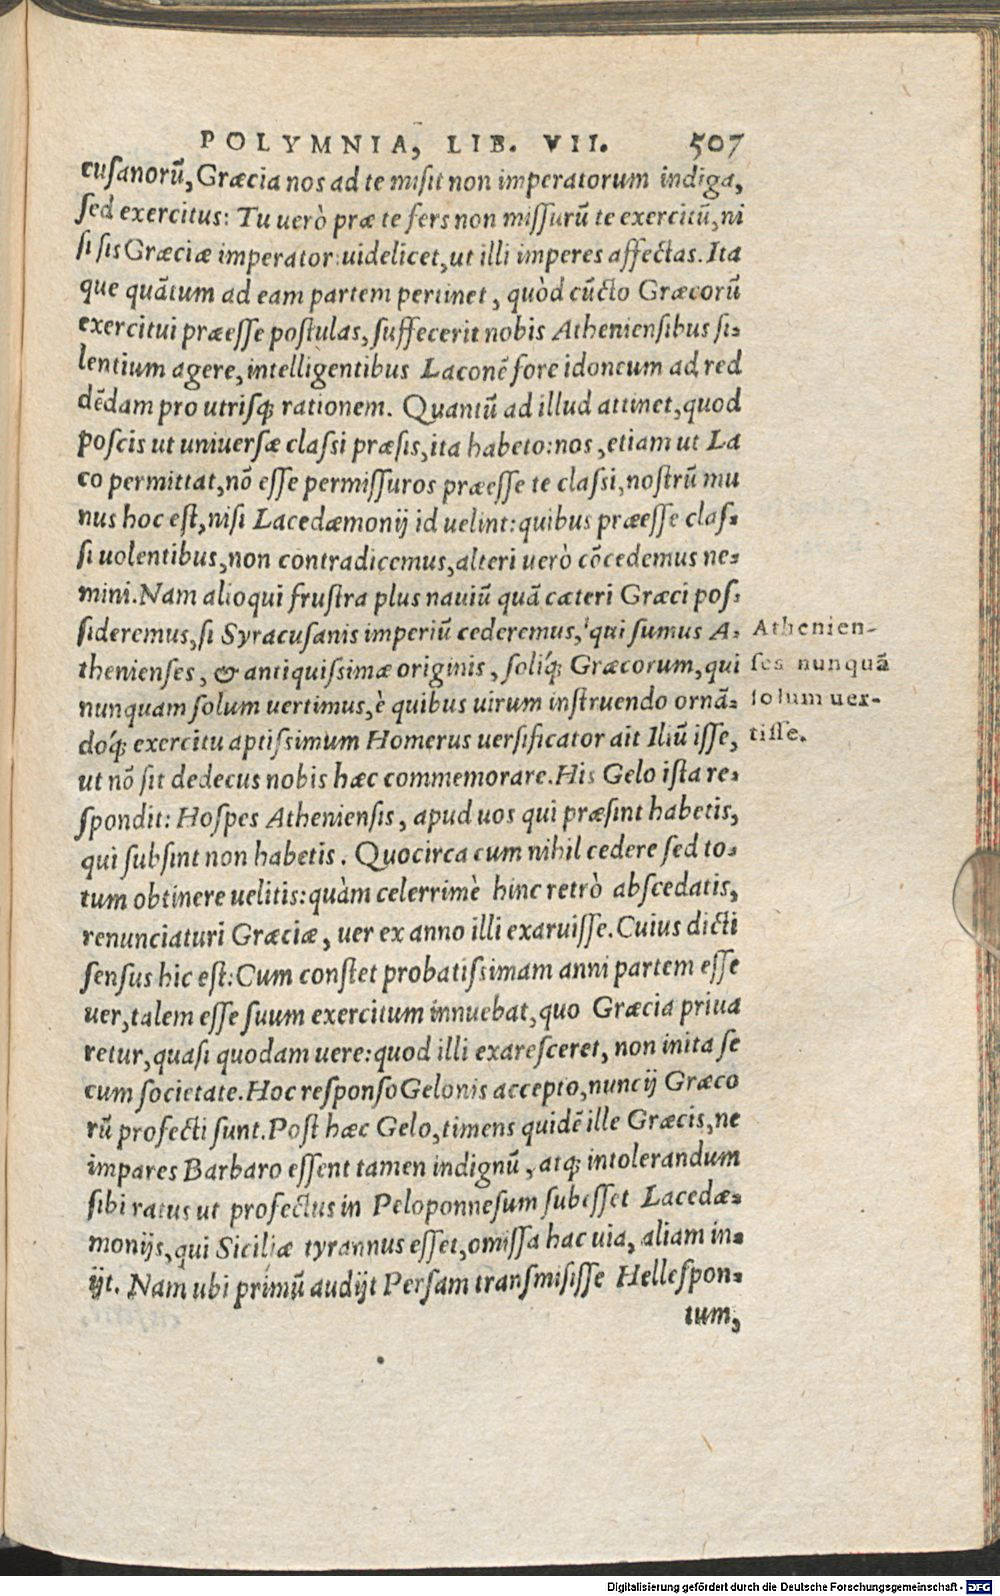 POLYMNIA, LIB. VII. 507
cuſanorũ, Græcia nos ad te miſit non imperatorum indiga,
ſed exercitus: Tu uerò præ te fers non miſſurũ te exercitũ, ni
ſi ſis Græciæ imperator: uidelicet, ut illi imperes affectas. Ita
que quãtum ad eam partem pertinet, quòd cũcto Græcorũ
exercitui præeſſe poſtulas, ſuffecerit nobis Athenienſibus ſi-
lentium agere, intelligentibus Laconẽ fore idoneum ad red
dẽdam pro utriſq; rationem. Quantũ ad illud attinet, quod
poſcis ut uniuerſæ claſsi præſis, ita habeto: nos, etiam ut La
co permittat, nõ eſſe permiſſuros præeſſe te claſsi, noſtrũ mu
nus hoc eſt, niſi Lacedæmonij id uelint: quibus præeſſe claſ-
ſi uolentibus, non contradicemus, alteri uerò cõcedemus ne-
mini. Nam alioqui fruſtra plus nauiũ quã cæteri Græci poſ-
ſideremus, ſi Syracuſanis imperiũ cederemus, qui ſumus A-
thenienſes, & antiquiſsimæ originis, ſoliq́; Græcorum, qui
nunquam ſolum uertimus, è quibus uirum inſtruendo ornã-
doq́; exercitu aptiſsimum Homerus uerſificator ait Iliũ iſſe,
ut nõ ſit dedecus nobis hæc commemorare. His Gelo iſta re-
ſpondit: Hoſpes Athenienſis, apud uos qui præſint habetis,
qui ſubſint non habetis. Quocirca cum nihil cedere ſed to-
tum obtinere uelitis: quàm celerrimè hinc retrò abſcedatis,
renunciaturi Græciæ, uer ex anno illi exaruiſſe. Cuius dicti
ſenſus hic eſt: Cum conſtet probatiſsimam anni partem eſſe
uer, talem eſſe ſuum exercitum innuebat, quo Græcia priua
retur, quaſi quodam uere: quod illi exareſceret, non inita ſe
cum ſocietate. Hoc reſponſo Gelonis accepto, nuncij Græco
rũ profecti ſunt. Poſt hæc Gelo, timens quidẽ ille Græcis, ne
impares Barbaro eſſent tamen indignũ, atq; intolerandum
ſibi ratus ut profectus in Peloponneſum ſubeſſet Lacedæ-
monijs, qui Siciliæ tyrannus eſſet, omiſſa hac uia, aliam in-
ijt. Nam ubi primũ audijt Perſam tranſmiſiſſe Helleſpon-
tum,
Athenien-
ſes nunquã
ſolum uer-
tiſſe.
Digitalisierung gefördert durch die Deutsche Forschungsgemeinschaft - DFG